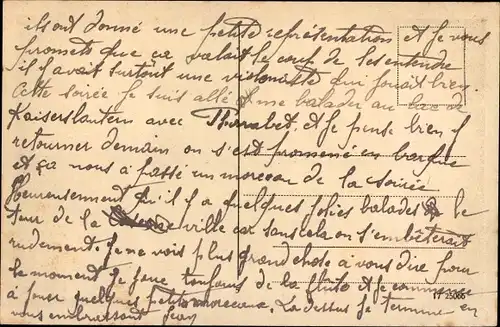 ils ont donné une petite représentation et je vous
promets que ca valait le coup de les entendre
il y avait surtout une violoniste qui jouait bien.
Cette soirée je suis allé me balader au lac de
Kaiserslautern avec et je pense bien y
retourner demain on s'est promené en barque
et ça nous a passé un morceau de la soirée
heureusement qu'il y a quelques jolies balades le
tour de la ville car sans cela on s'embêterait
rudement. Je ne vois plus grand chose à vous dire pour
le moment je joue toujours de la flûte et je commence
à jouer quelques petits morceaux. La dessus je termine en
vous embrassant Jean